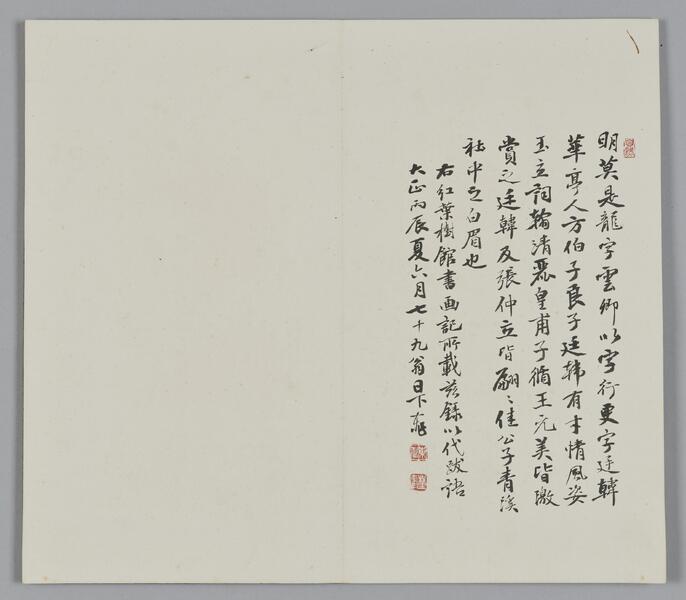 明莫是龍字雲卿以字行更字廷韓
華亭人方伯子良子廷韓有才情風姿
玉立詞翰清麗皇甫子循王元美皆激
賞之廷韓及張仲立皆翩〻佳公子青溪
社中之白眉也
右紅葉樹館書画記所載茲録以代跋語
大正丙辰夏六月七十九翁日下東